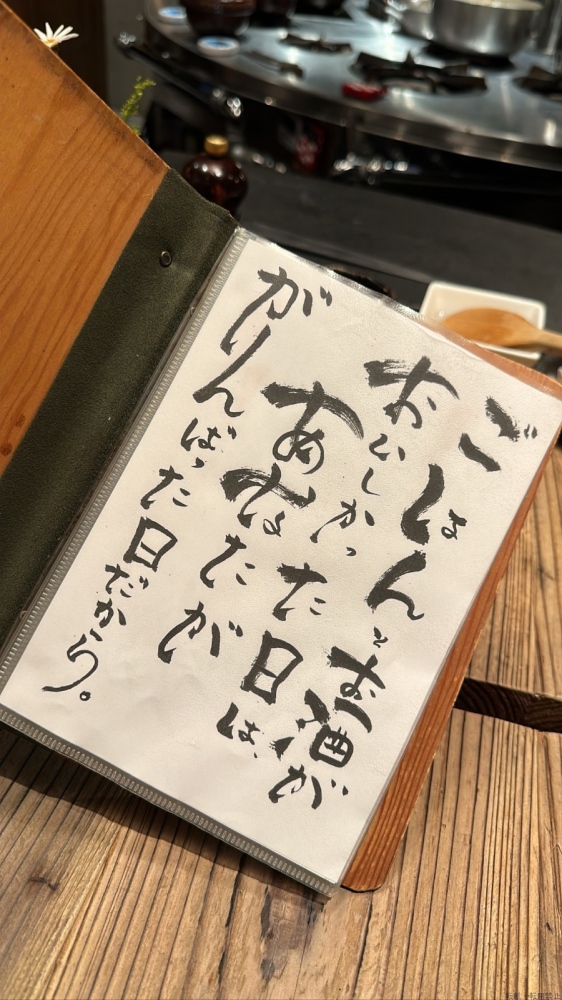 ごはんとお酒が
おいしかった日は、
あなたが
がんばった日だから。